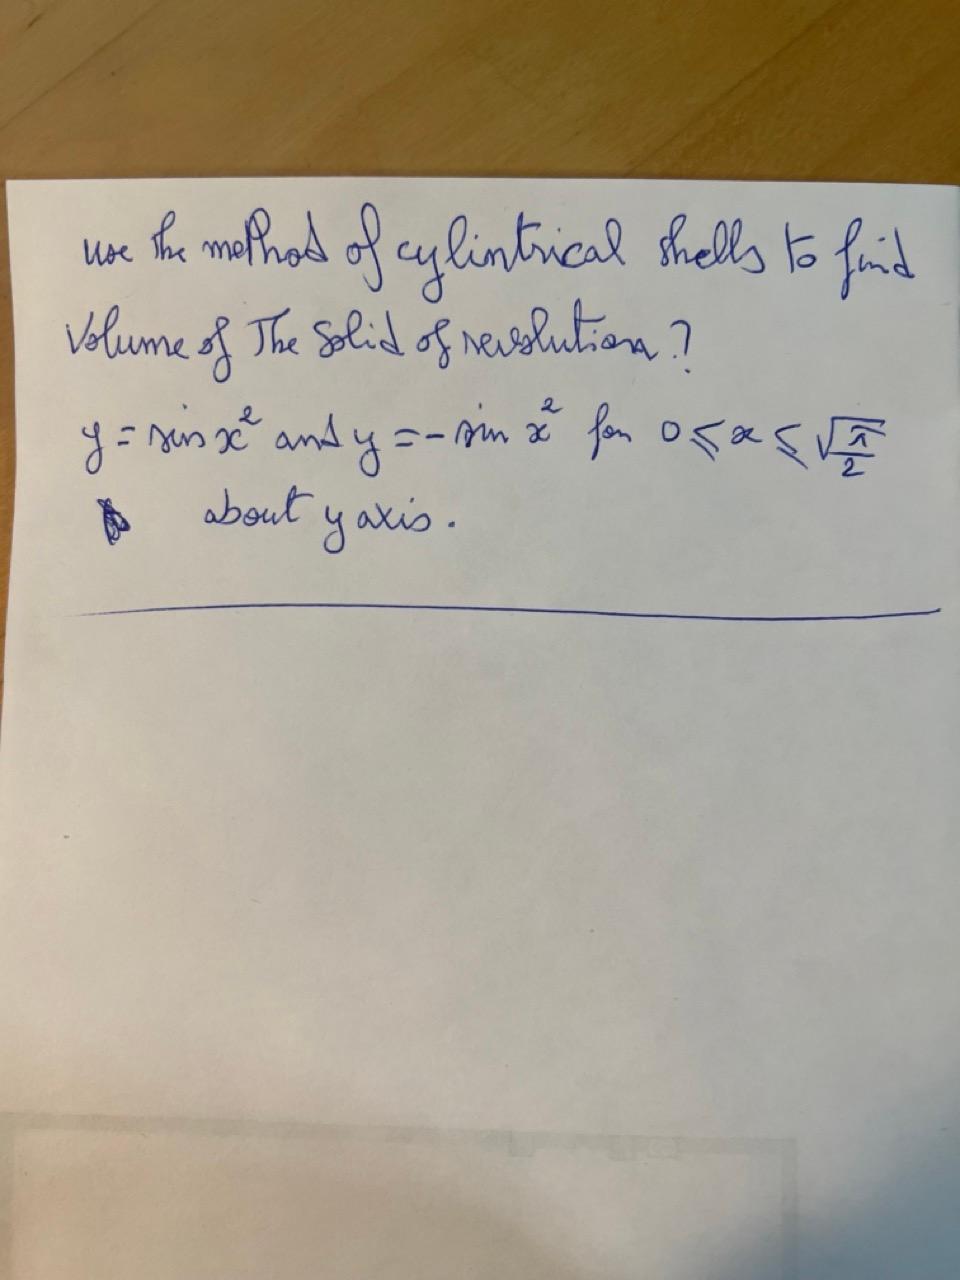 use the method of cylintrical shells to find
Volume of The Solid of revolution ?
y = sin x² and y = - sin x² for 0 ≤ x ≤ √π/2
about y axis .